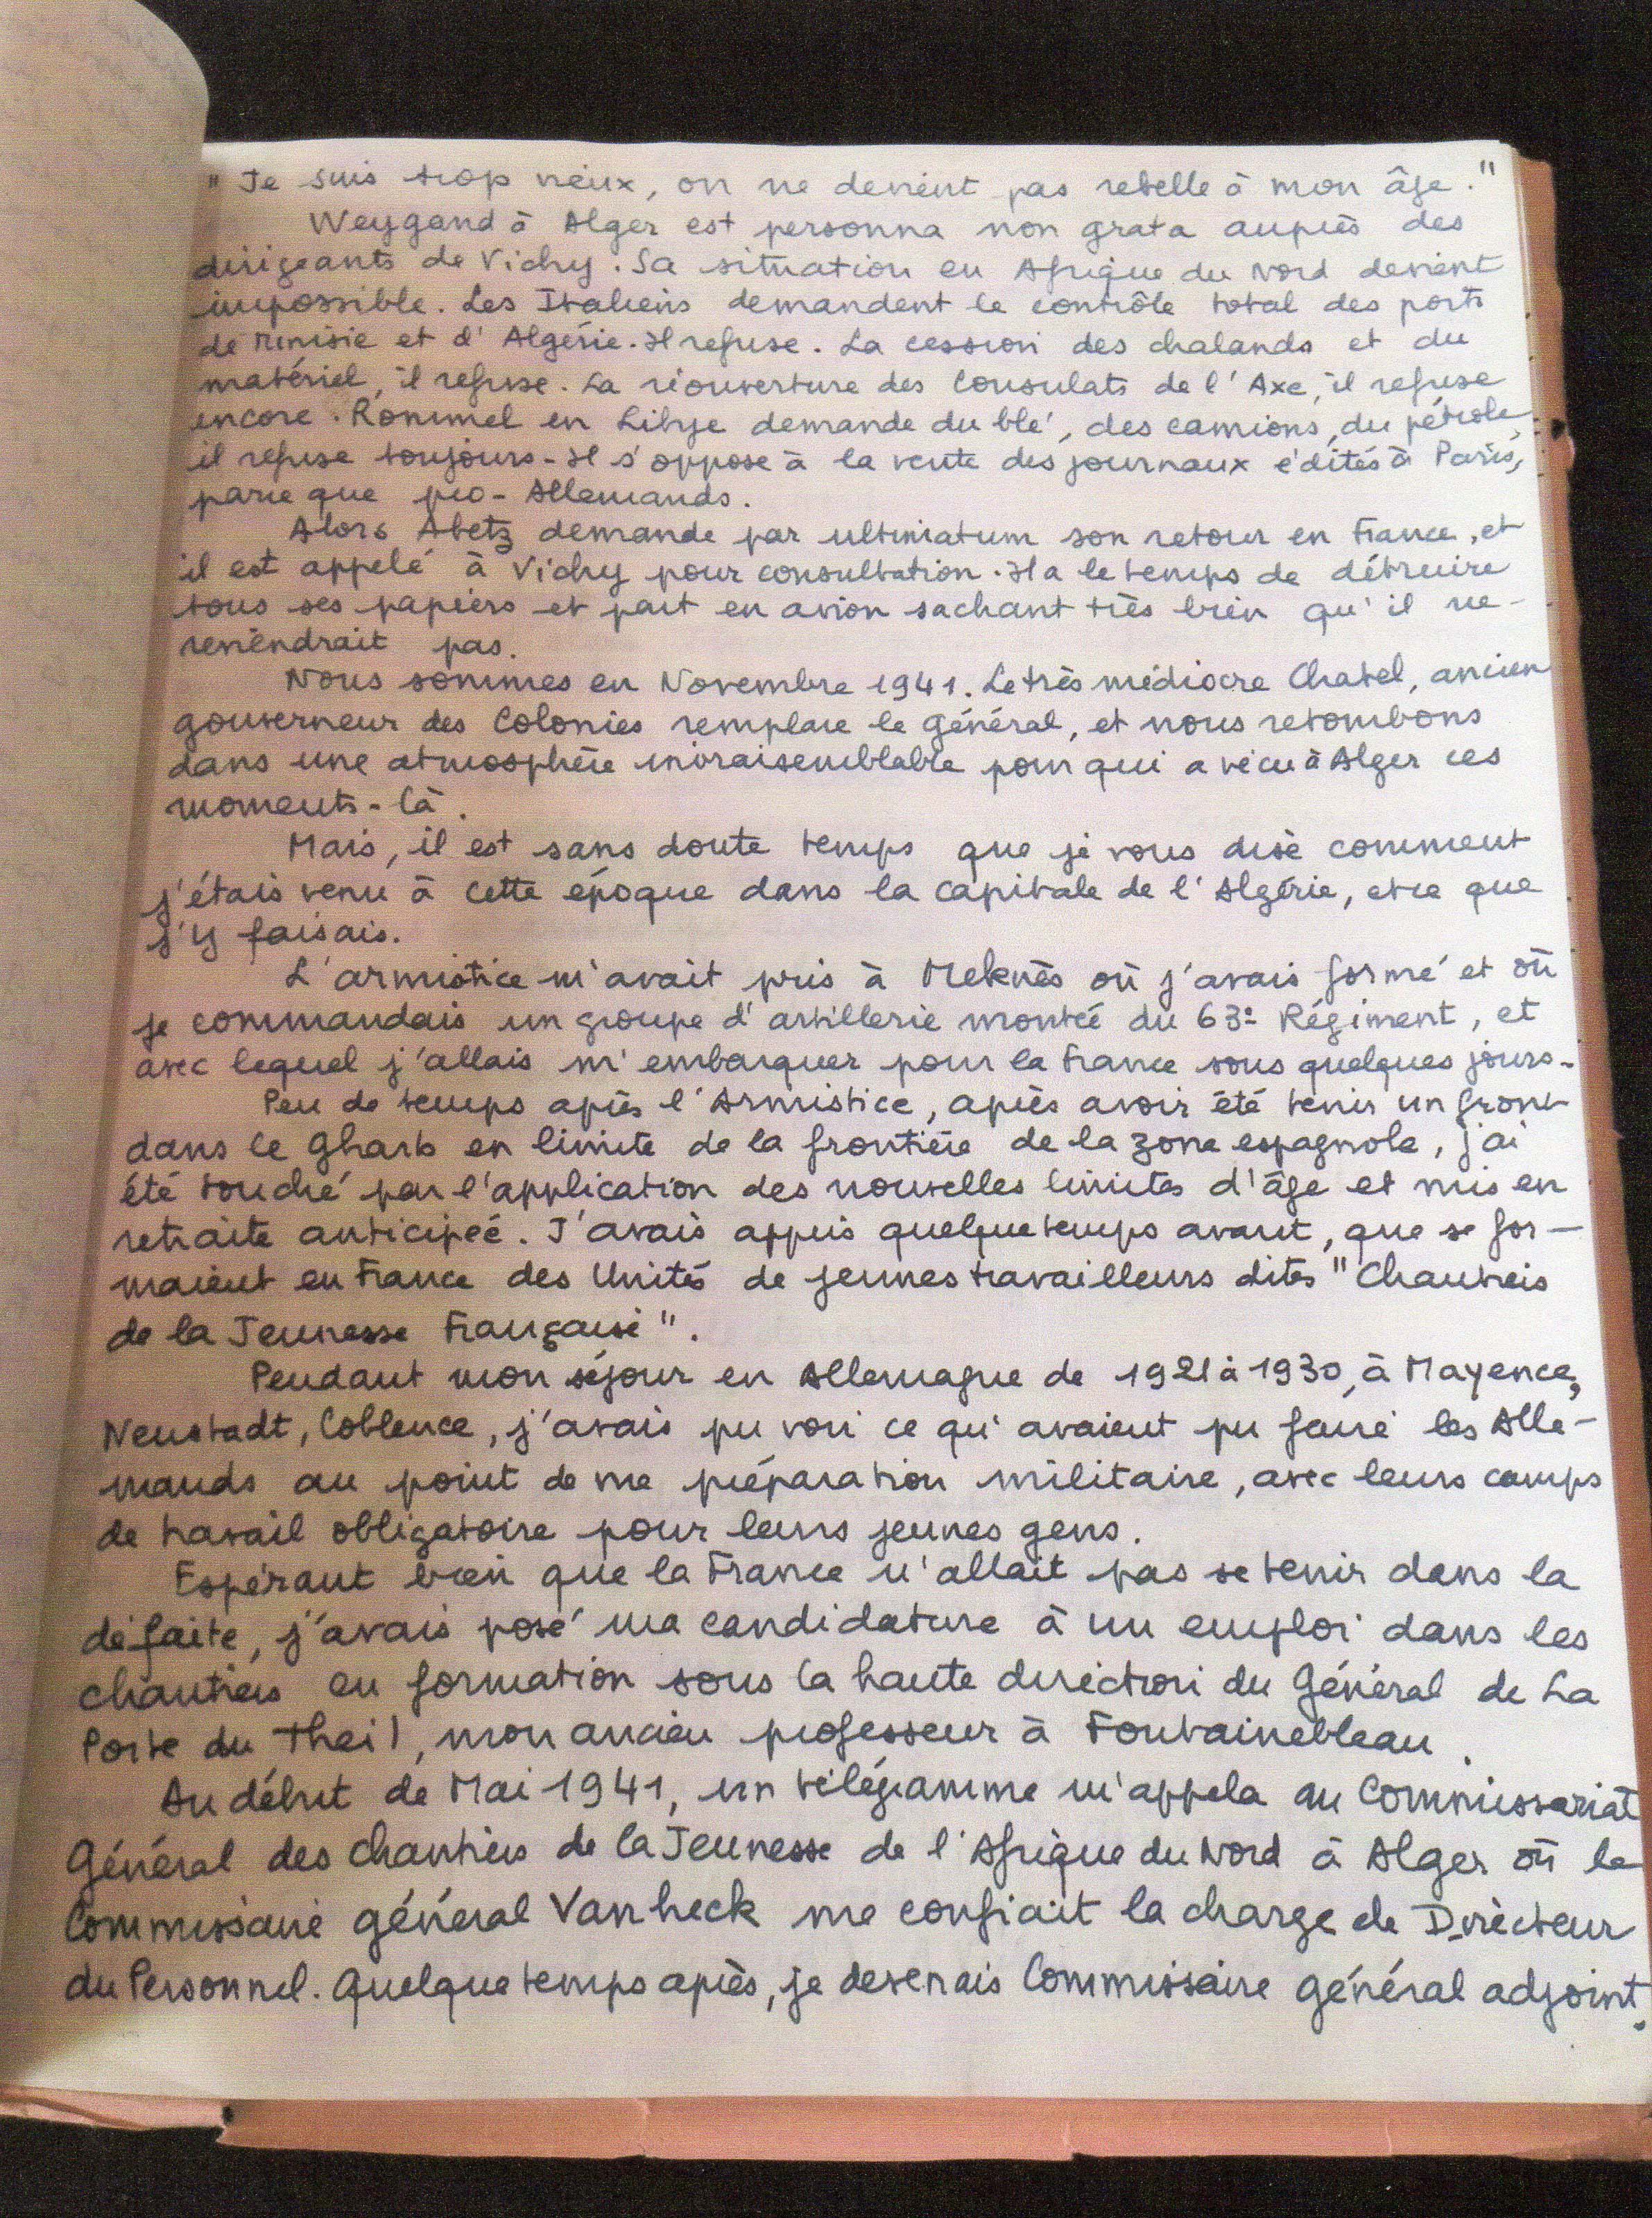 "Je suis trop vieux, on ne devient pas rebelle à mon âge."
Weygand à Alger est personna non grata auprès des
dirigeants de Vichy. Sa situation en Afrique du Nord devient
impossible. Les Italiens demandent le contrôle total des ports
de Tunisie et d'Algérie. Il refuse. La cession des chalands et du
matériel, il refuse. La réouverture des Consulats de l'Axe, il refuse
encore. Rommel en Libye demande du blé, des camions, du pétrole,
il refuse toujours - Il s'oppose à la vente des journaux édités à Paris,
parce que pro-Allemands.
Alors Abetz demande par ultimatum son retour en France, et
il est appelé à Vichy pour consultation. Il a le temps de détruire
tous ses papiers et part en avion sachant très bien qu'il ne
reviendrait pas.
Nous sommes en Novembre 1941. Le très médiocre Chatel, ancien
gouverneur des Colonies remplace le Général, et nous retombons
dans une atmosphère invraisemblable pour qui a vécu à Alger ces
moments-là.
Mais, il est sans doute temps que je vous dise comment
j'étais venu à cette époque dans la capitale de l'Algérie, et ce que
j'y faisais.
L'armistice m'avait pris à Meknès où j'avais formé et où
je commandais un groupe d'artillerie montée du 63e Régiment, et
avec lequel j'allais m'embarquer pour la France sous quelques jours.
Peu de temps après l'Armistice, après avoir été tenir un front
dans le Gharb en limite de la frontière de la zone espagnole, j'ai
été touché par l'application des nouvelles limites d'âge et mis en
retraite anticipée. J'avais appris quelque temps avant, que se for-
maient en France des Unités de jeunes travailleurs dites "Chantiers
de la Jeunesse Française".
Pendant mon séjour en Allemagne de 1921 à 1930, à Mayence,
Neustadt, Coblence, j'avais pu voir ce qu'avaient pu faire les Alle-
mands au point de vue préparation militaire, avec leurs camps
de travail obligatoire pour leurs jeunes gens.
Espérant bien que la France n'allait pas se tenir dans la
défaite, j'avais posé ma candidature à un emploi dans les
chantiers en formation sous la haute direction du Général de La
Porte du Theil, mon ancien professeur à Fontainebleau.
Au début de Mai 1941, un télégramme m'appela au Commissariat
Général des Chantiers de la Jeunesse de l'Afrique du Nord à Alger où le
Commissaire général Van heck me confiait la charge de Directeur
du Personnel. Quelque temps après, je devenais Commissaire général adjoint.